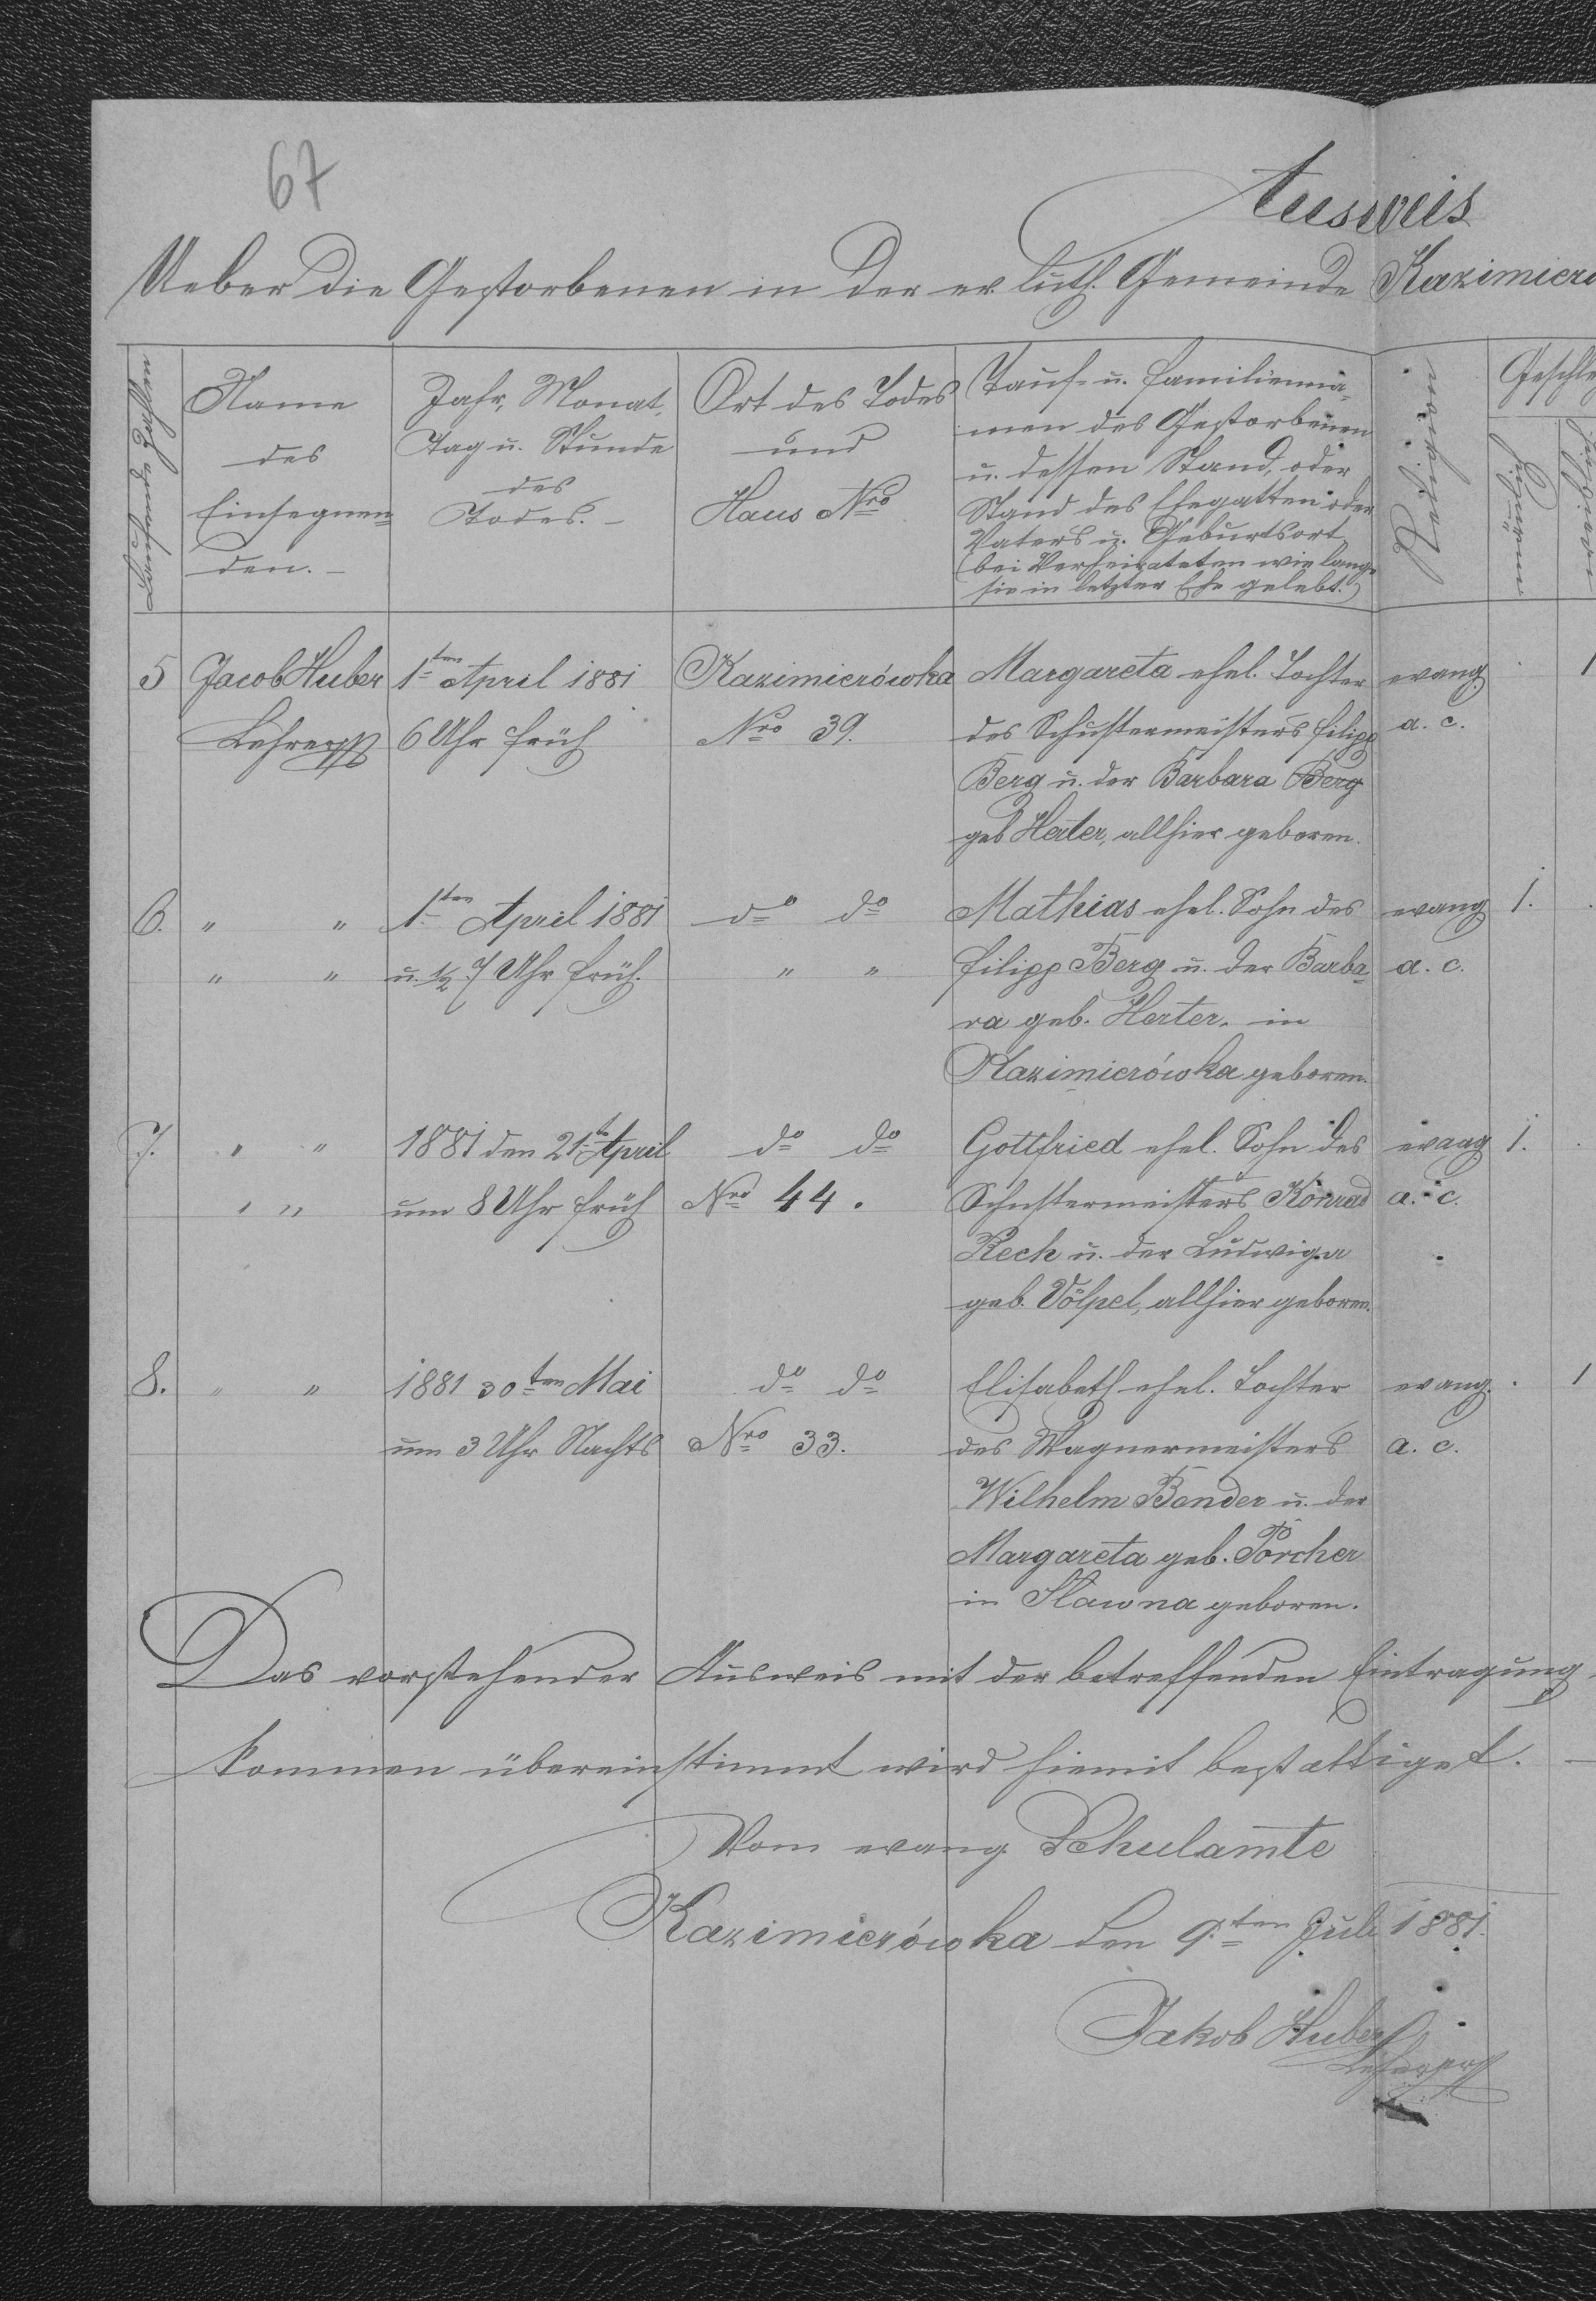 67
Ausweis
Ueber die Gestorbenen in der ev. luth. Gemeinde Kazimieró
Laufende Zahlen
Name
des
Einsegnen=
den.—
Jahr, Monat,
Tag u. Stunde
des
Todes.—
Ort des Todes
und
Haus Nro
Tauf- u. Familienna=
men des Gestorbenen
u. dessen Stand, oder
Stand des Ehegatten oder
Vaters u. Geburtsort
(bei Verheirateten wie lange
sie in letzter Ehe gelebt.)
Religion
Geschle
5 Jacob Huber 1ten April 1881 Kazimierówka Margareta ehel. Tochter evang. . 1
Lehrer 6 Uhr früh Nro 39. des Schustermeisters Filipp a. c.
Berg u. der Barbara Berg
geb Herter, allhier geboren.
6. " " 1ten April 1881 do do Mathias ehel. Sohn des evang. 1. .
" " u. 1/2 7 Uhr früh. " " Filipp Berg u. der Barba= a. c.
ra geb. Herter. in
Kazimierówka geboren.
7. " " 1881 den 21ten April do do Gottfried ehel. Sohn des evang. 1. .
" " um 8 Uhr früh Nro 44. Schustermeisters Konrad a. c.
Rech u. der Ludwiga
geb. Völpel, allhier geboren.
8. " " 1881 30ten Mai do do Elisabeth ehel. Tochter evang. . 1
um 3 Uhr Nachts Nro 33. des Wagnermeisters a. c.
Wilhelm Bender u. der
Margareta geb. Porcher
in Slawna geboren.
Das vorstehender Ausweis mit der betreffenden Eintragung
kommen übereinstimmt wird hiemit bestättiget. —
Vom evang. Schulamte
Kazimierówka den 9ten Juli 1881.
Jakob Huber
Lehrer